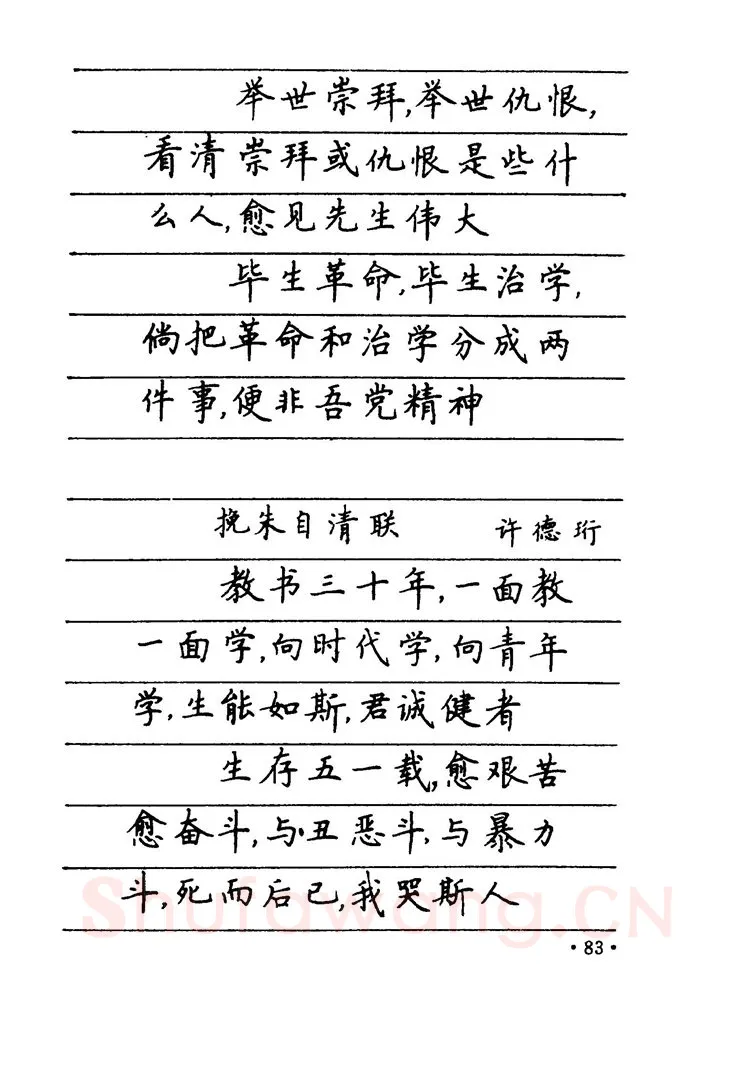 举世崇拜,举世仇恨,
看清崇拜或仇恨是些什
么人,愈见先生伟大
毕生革命,毕生治学,
倘把革命和治学分成两
件事,便非吾党精神
挽朱自清联 许德珩
教书三十年,一面教
一面学,向时代学,向青年
学,生能如斯,君诚健者
生存五一载,愈艰苦
愈奋斗,与丑恶斗,与暴力
斗,死而后已,我哭斯人
Shufawang.CN
·83·